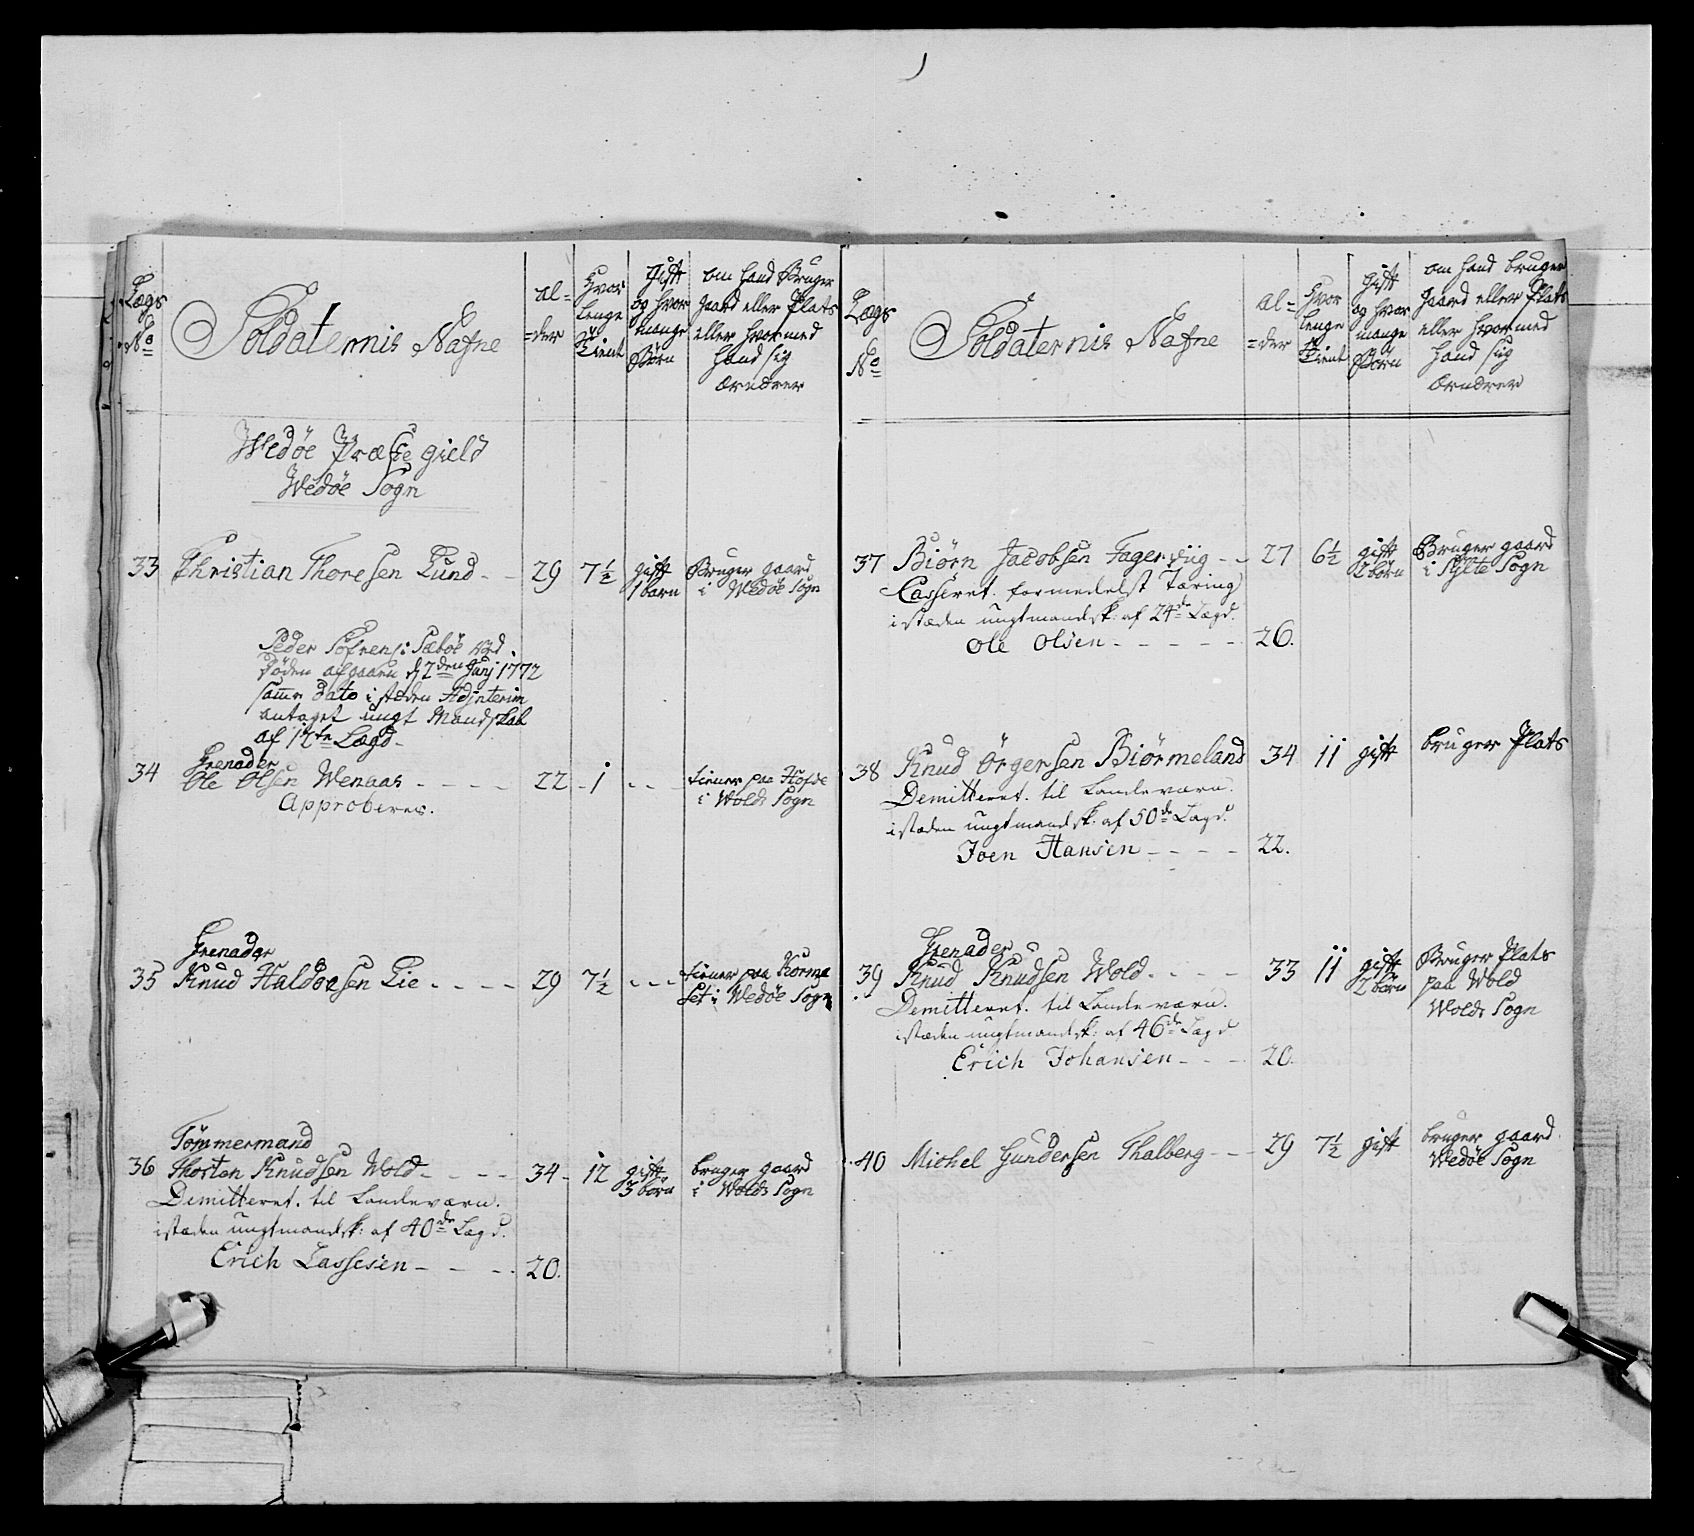 Lægs
No
Soldaternis Nafne
al-
=der
Hvor
lenge
Tient
Gift
og hvor
mange
Børn
om hand Bruger
gaard eller Plats
eller hvormed
hand sig
ernærer
Wedøe Præste gield
Wedøe Sogn
33 Christian Thoresen Lund - - 29 7½ gift 1 barn Bruger gaard i Wedøe Sogn
Peder Sofrens: Sæbøe ved
Døden afgaaen d 7den Junj 1772
samme Dato i stæden Adjnterim
antaget ungt Mandskab
af 12te Lægd.
Grenader
34 Ole Olsen Wenaas - - - - 22 - 1 - - tiener paa Hofde i Wolds Sogn
Approberes.
Grenader
35 Knud Haldorsen Lie - - - - 29 7½ - - - tiener paa Korms
Set i Wedøe Sogn
Tømmermand
36 Thosten Knudsen Wold - - - - 34 - 12 gift 3 børn bruger gaard i Wolds Sogn
Demitteret. til Landeværn.
istæden ungtmandsk: af 40de Lægd.
Erich Lassesen - - - - 20.
Lægs
No
Soldaternis Nafne
al-
=der
Hvor
lenge
Tient
Gift
og hvor
mange
Børn
om hand bruger
gaard eller Plats
eller hvormed
hand sig
ernærer
37 Biørn Jacobsen Fagerviig - - 27 6½ gift 2 børn Bruger gaard i Sylte Sogn
Casseret. formedelst Tæring
istæden ungtmandsk: af 24de Lægd.
Ole Olsen - - - - - 26.
38 Knud Örgersen Biørmeland 34 11 gift bruger Plats
Demitteret. til Landeværn.
istæden ungtmandsk: af 50de Lægd.
Joen Hansen - - - - 22.
Grenader
39 Knud Knudsen Wold - - - - 33 11 gift 2 børn Bruger Plats
paa Wold
Wolds Sogn
Demitteret. til Landeværn.
istæden ungtmandsk: af 46de Lægd
Erich Johansen - - - 20.
40 Michel Gundersen Thalberg - - - 29 7½ gift bruger gaard
Wedøe Sogn